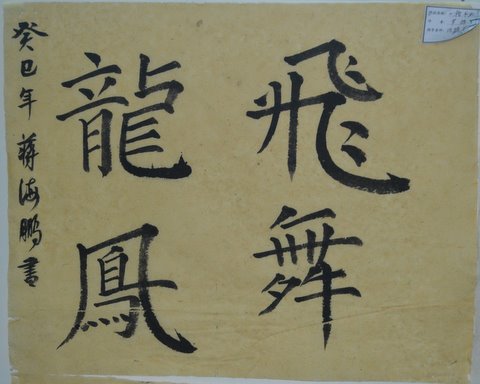 飛舞
龍鳳
癸巳年 蔣海鵬書